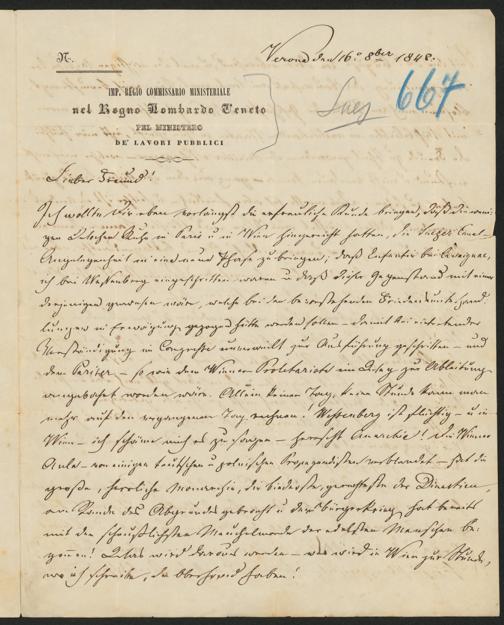 N.
Verona den 16. 8ber 1848.
IMP. REGIO COMMISSARIO MINISTERIALE
nel Regno Lombardo Veneto
PEL MINISTERO
DE' LAVORI PUBBLICI
Suez
667
Lieber Freund!
Ich wollte Dir eben vorlängst die erfreuliche Kunde bringen, daß die weni-
gen Wochen Ruhe in Paris u in Wien hingereicht hatten, die Suezer Canal-
Angelegenheit in eine neue Phase zu bringen; daß Enfantin bei Cavaignac,
ich bei Wessenberg eingeschritten waren u daß dieser Gegenstand mit einer
derjenigen gewesen wäre, welche bei den bevorstehenden Friedensunterhand-
lungen in Erwägung gezogen hätte werden sollen - damit bei eintretender
Verständigung im Congresse unverweilt zur Ausführung geschritten - und
dem Pariser - so wie dem Wiener Proletariate ein Zug zur Ableitung
angebahnt worden wäre. Allein keinen Tag, keine Stunde kann man
mehr auf den vergangenen Tag rechnen! Wessenberg ist flüchtig - u in
Wien - ich schäme mich es zu sagen - herrscht Anarchie! Die Wiener
Aula - von einigen deutschen u polnischen Propagandisten verblendet - hat die
große, herrliche Monarchie, die
am Rande des Abgrundes gebracht u der Bürgerkrieg hat bereits
mit den scheußlichsten Meuchelmorde der edelsten Menschen be-
gonnen! Was wird daraus werden - was wird in Wien zur Stunde,
wo ich schreibe, die Oberhand haben!